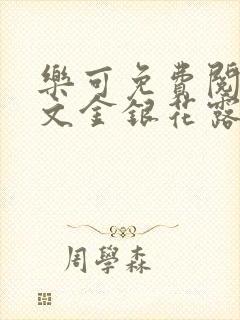 樂可免費閱
文全銀花露
周學森